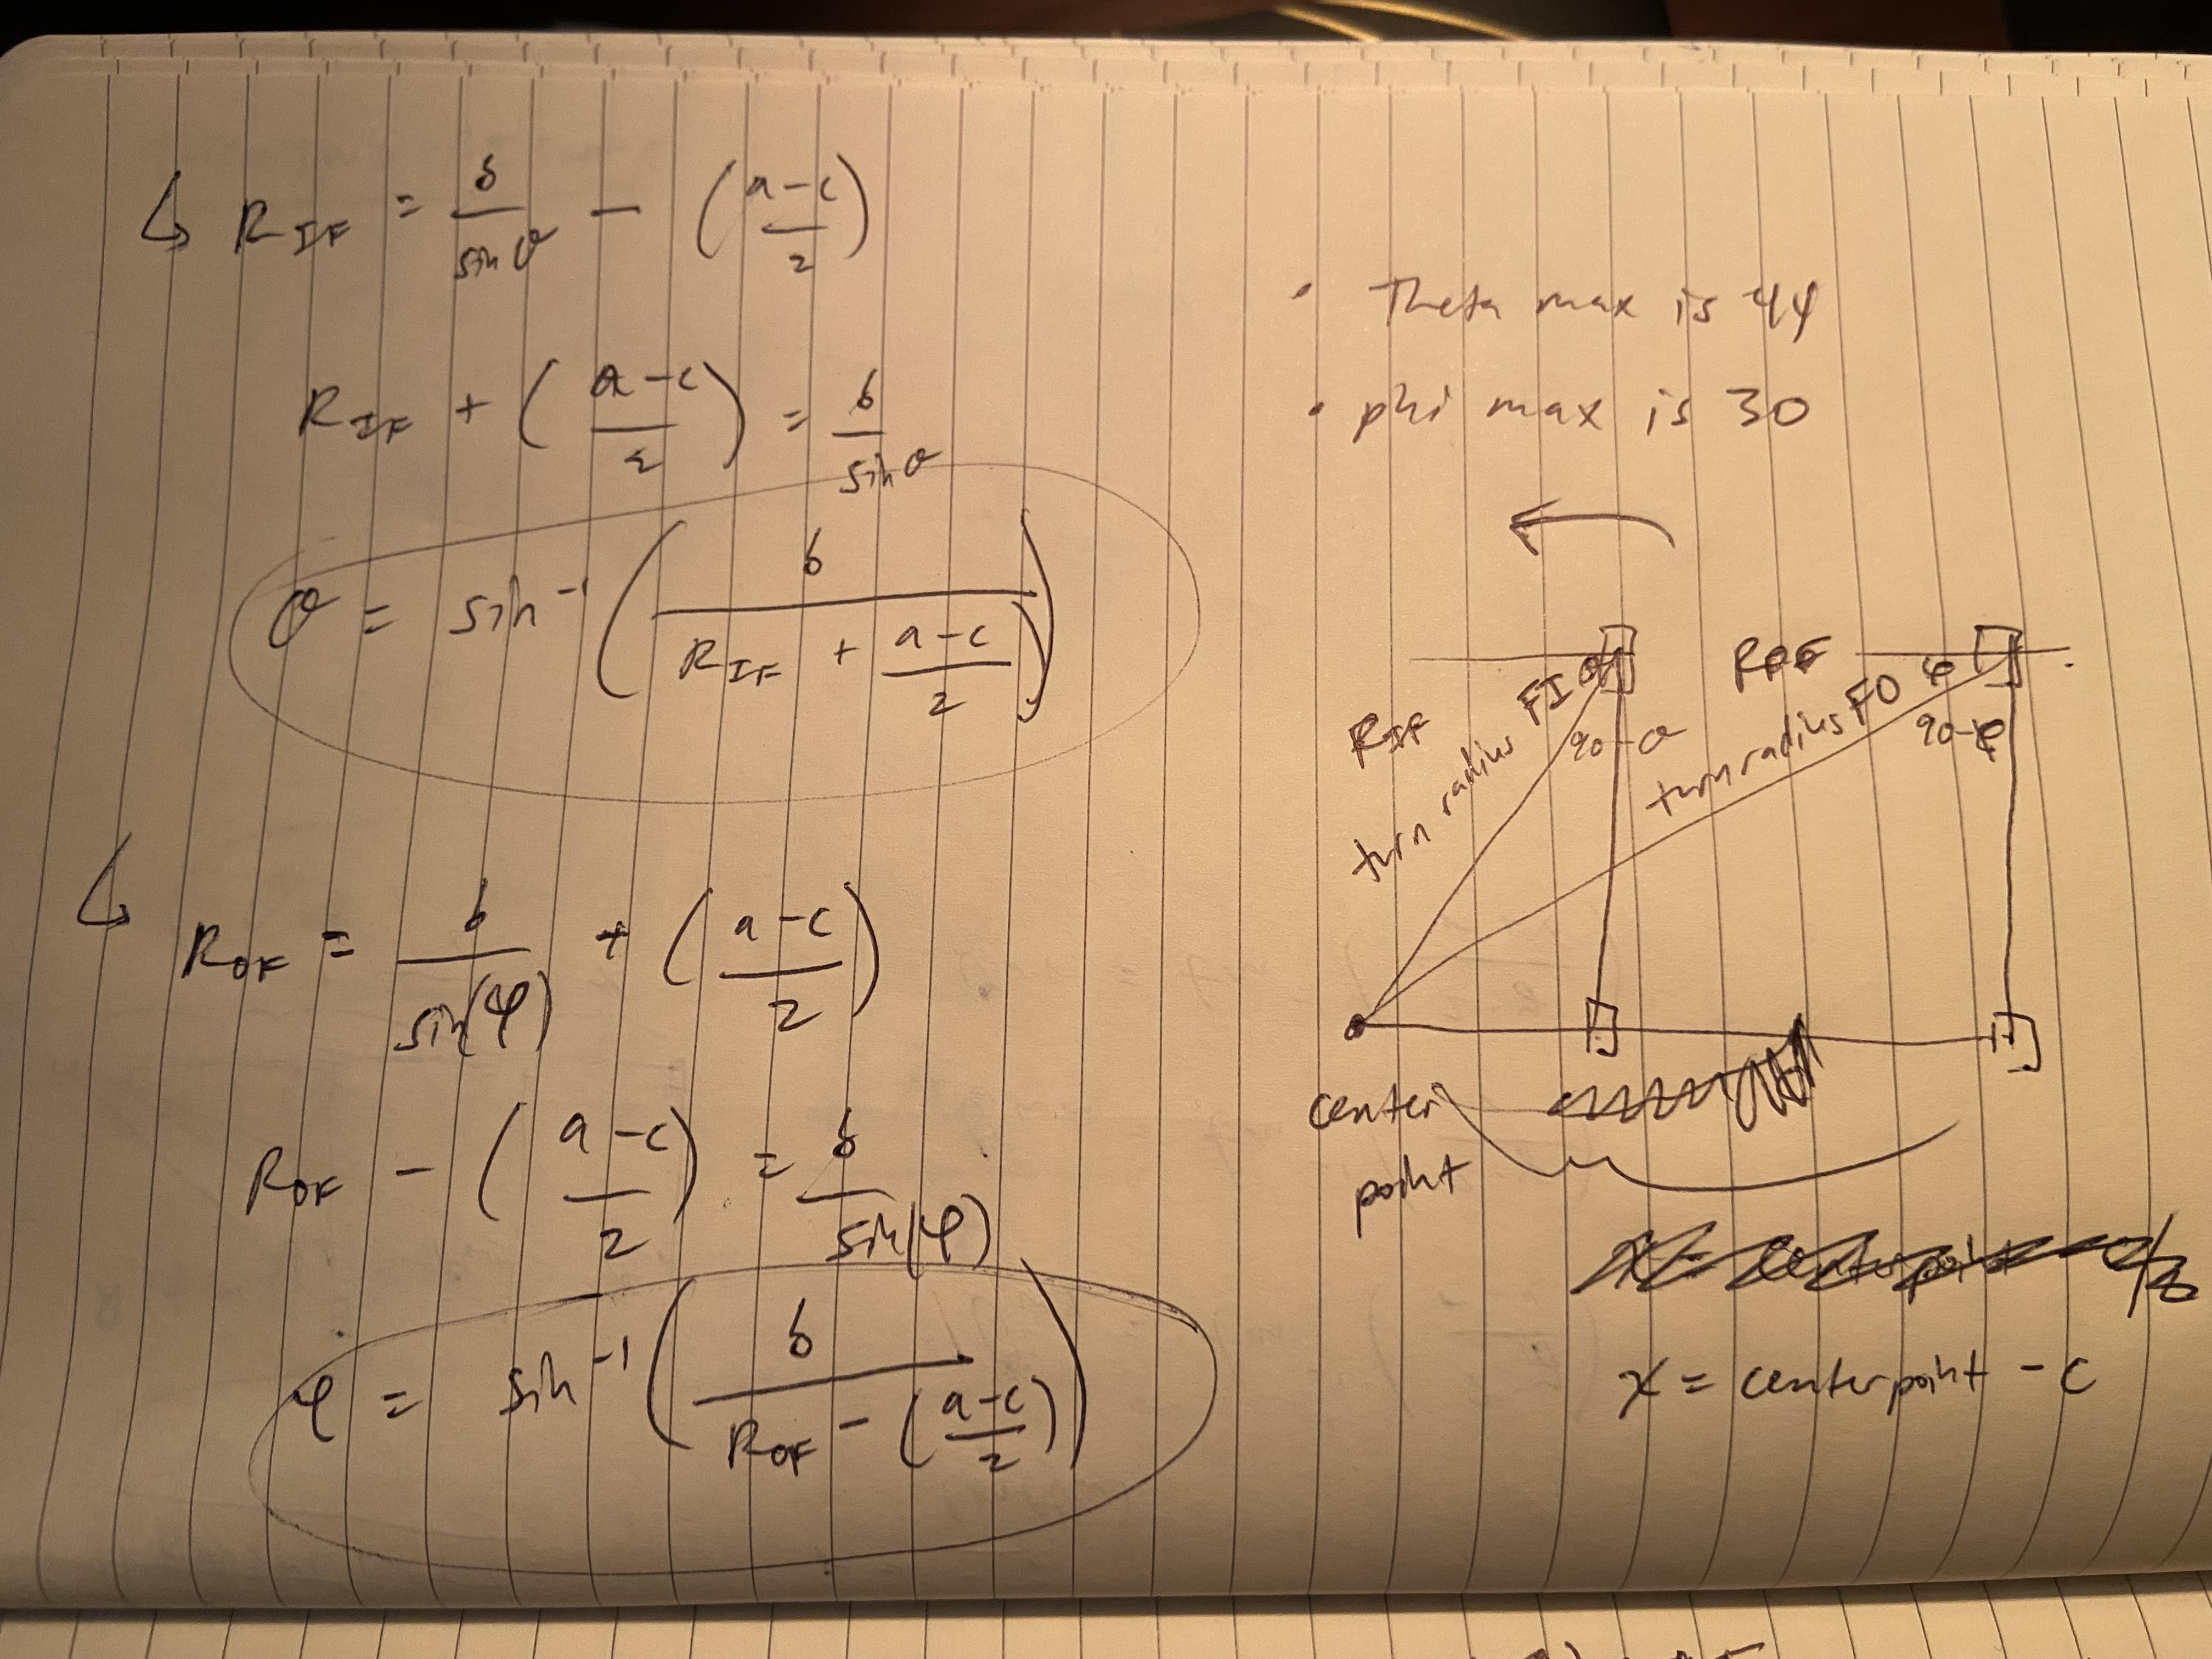 ↳ R_IF = b/sin θ − ((a−c)/2)
R_IF + ((a−c)/2) = b/sin θ
θ = sin⁻¹(b/(R_IF + (a−c)/2))
↳ R_OF = b/sin(φ) + ((a−c)/2)
R_OF − ((a−c)/2) = b/sin(φ)
φ = sin⁻¹(b/(R_OF − ((a−c)/2)))
• Theta max is 44
• phi max is 30
R_IF
turn radius FI θ
90-θ
turn radius FO φ
90-φ
center
point
x = centerpoint − c